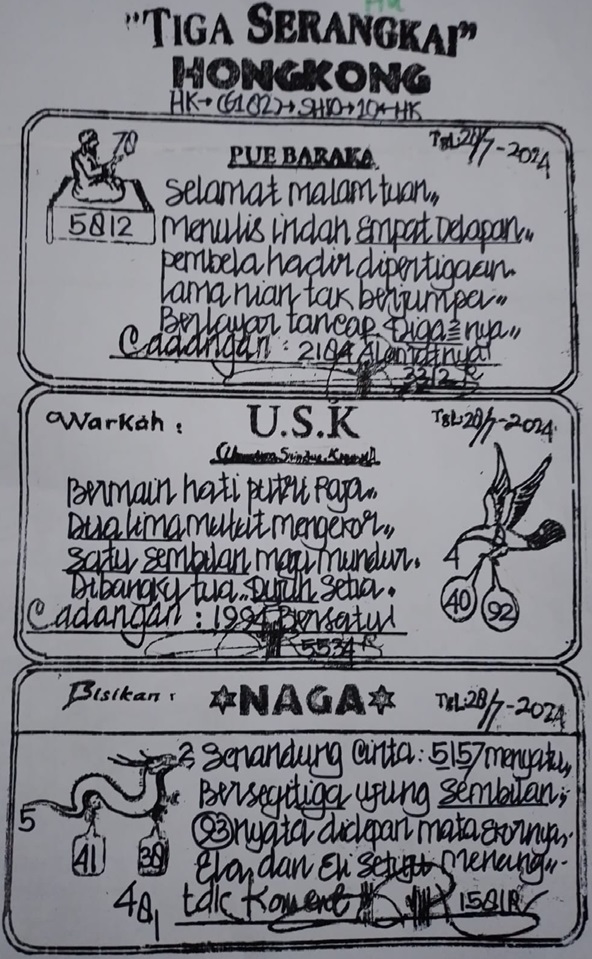 "TIGA SERANGKAI"
HONGKONG
HK→(6182)→SHIO→10←HK
70
5812
PUE BARAKA
Tgl:28/7-2024
Selamat malam tuan,,
Menulis indah Empat Delapan,,
pembela hadir dipertigaan.
Lama nian tak berjumpa,,
Berlayar tancap tiganya,,
Cadangan : 2184 Alamatnya!
3312
Warkah :
U.S.K
Tgl:28/7-2024
Bermain hati putri Raja,,
Dua lima melilit mengekor,,
Satu Sembilan maju mundur.
Dibangku tua.. Tujuh Setia.
Cadangan : 1994 Bersatu!
5534
4
40
92
Bisikan :
NAGA
Tgl:28/7-2024
Senandung Cinta: 5157 menyatu,,
Bersegitiga ujung Sembilan,,
93 nyata didepan mata Ekornya,
Ela, dan Eli Setuju menang,,
tdk Koment
1581R
2
5
41
38
481